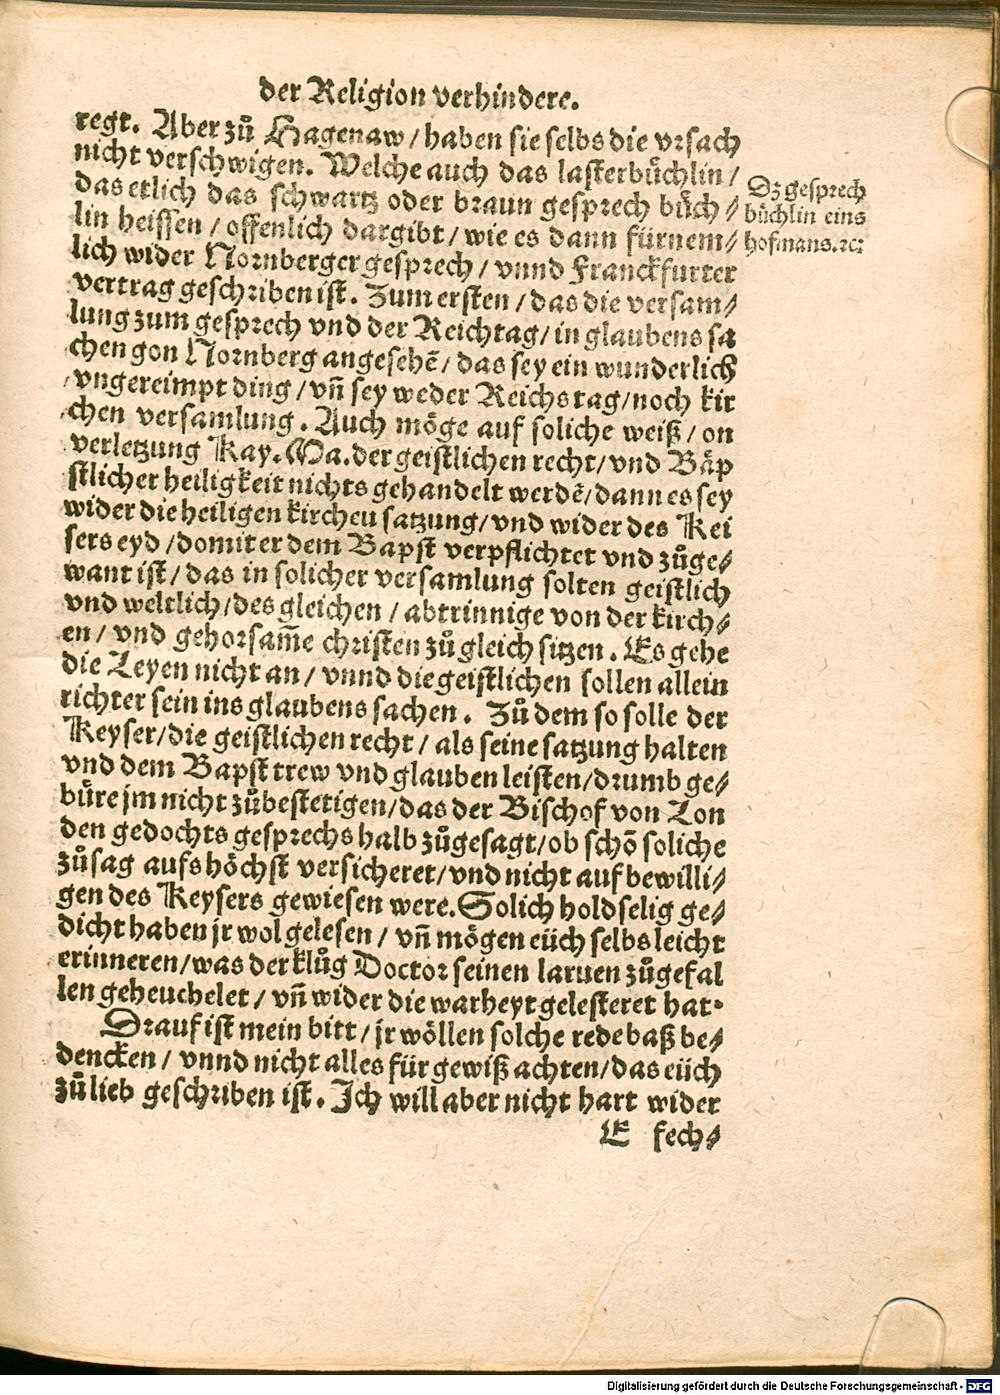 der Religion verhindere.
regt. Aber zů Hagenaw / haben sie selbs die vrsach
nicht verschwigen. Welche auch das lasterbüchlin /
das etlich das schwartz oder braun gesprech büch⸗
lin heissen / offenlich dargibt / wie es dann fürnem⸗
lich wider Nornberger gesprech / vnnd Franckfurter
vertrag geschriben ist. Zum ersten / das die versam⸗
lung zum gesprech vnd der Reichtag / in glaubens sa
chen gon Nornberg angesehē / das sey ein wunderlich
vngereimpt ding / vn̄ sey weder Reichstag / noch kir
chen versamlung. Auch möge auf soliche weiß / on
verletzung Kay. Ma. der geistlichen recht / vnd Bäp
stlicher heiligkeit nichts gehandelt werdē / dann es sey
wider die heiligen kircheu satzung / vnd wider des Kei
sers eyd / domit er dem Bapst verpflichtet vnd zůge⸗
want ist / das in solicher versamlung solten geistlich
vnd weltlich / des gleichen / abtrinnige von der kirch⸗
en / vnd gehorsam̄e christen zů gleich sitzen. Es gehe
die Leyen nicht an / vnnd die geistlichen sollen allein
richter sein ins glaubens sachen. Zů dem so solle der
Keyser / die geistlichen recht / als seine satzung halten
vnd dem Bapst trew vnd glauben leisten / drumb ge⸗
büre jm nicht zůbestetigen / das der Bischof von Lon
den gedochts gesprechs halb zůgesagt / ob schō soliche
zůsag aufs höchst versicheret / vnd nicht auf bewilli⸗
gen des Keysers gewiesen were. Solich holdselig ge⸗
dicht haben jr wol gelesen / vn̄ mögen eüch selbs leicht
erinneren / was der klůg Doctor seinen laruen zůgefal
len geheuchelet / vn̄ wider die warheyt gelesteret hat.
Drauf ist mein bitt / jr wöllen solche rede baß be⸗
dencken / vnnd nicht alles für gewiß achten / das eüch
zů lieb geschriben ist. Ich will aber nicht hart wider
E fech⸗
Dz gesprech
büchlin eins
hofmans. ꝛc:
Digitalisierung gefördert durch die Deutsche Forschungsgemeinschaft - DFG